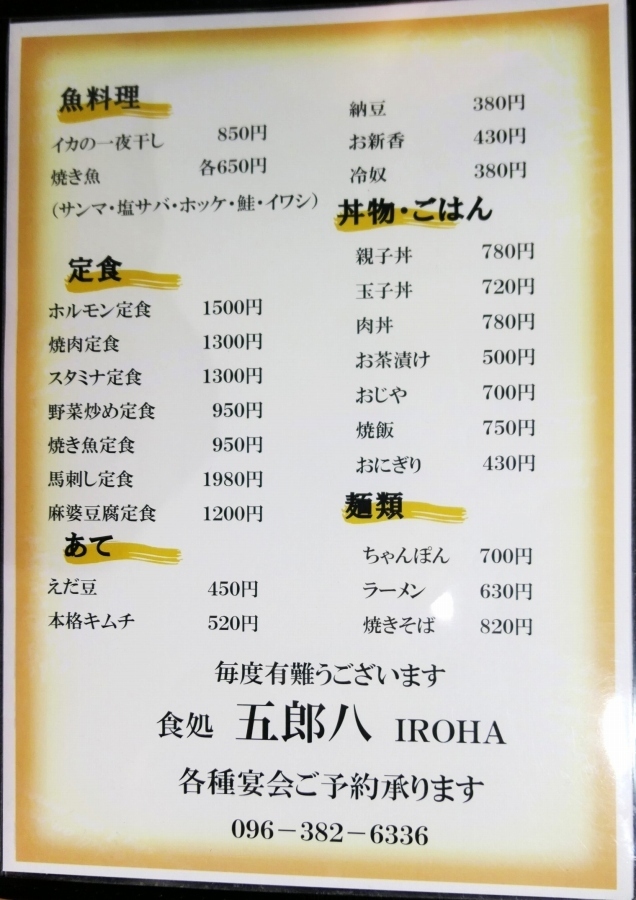 魚料理
イカの一夜干し 850円
焼き魚 各650円
（サンマ・塩サバ・ホッケ・鮭・イワシ）
定食
ホルモン定食 1500円
焼肉定食 1300円
スタミナ定食 1300円
野菜炒め定食 950円
焼き魚定食 950円
馬刺し定食 1980円
麻婆豆腐定食 1200円
あて
えだ豆 450円
本格キムチ 520円
納豆 380円
お新香 430円
冷奴 380円
丼物・ごはん
親子丼 780円
玉子丼 720円
肉丼 780円
お茶漬け 500円
おじや 700円
焼飯 750円
おにぎり 430円
麺類
ちゃんぽん 700円
ラーメン 630円
焼きそば 820円
毎度有難うございます
食処 五郎八 IROHA
各種宴会ご予約承ります
096－382－6336